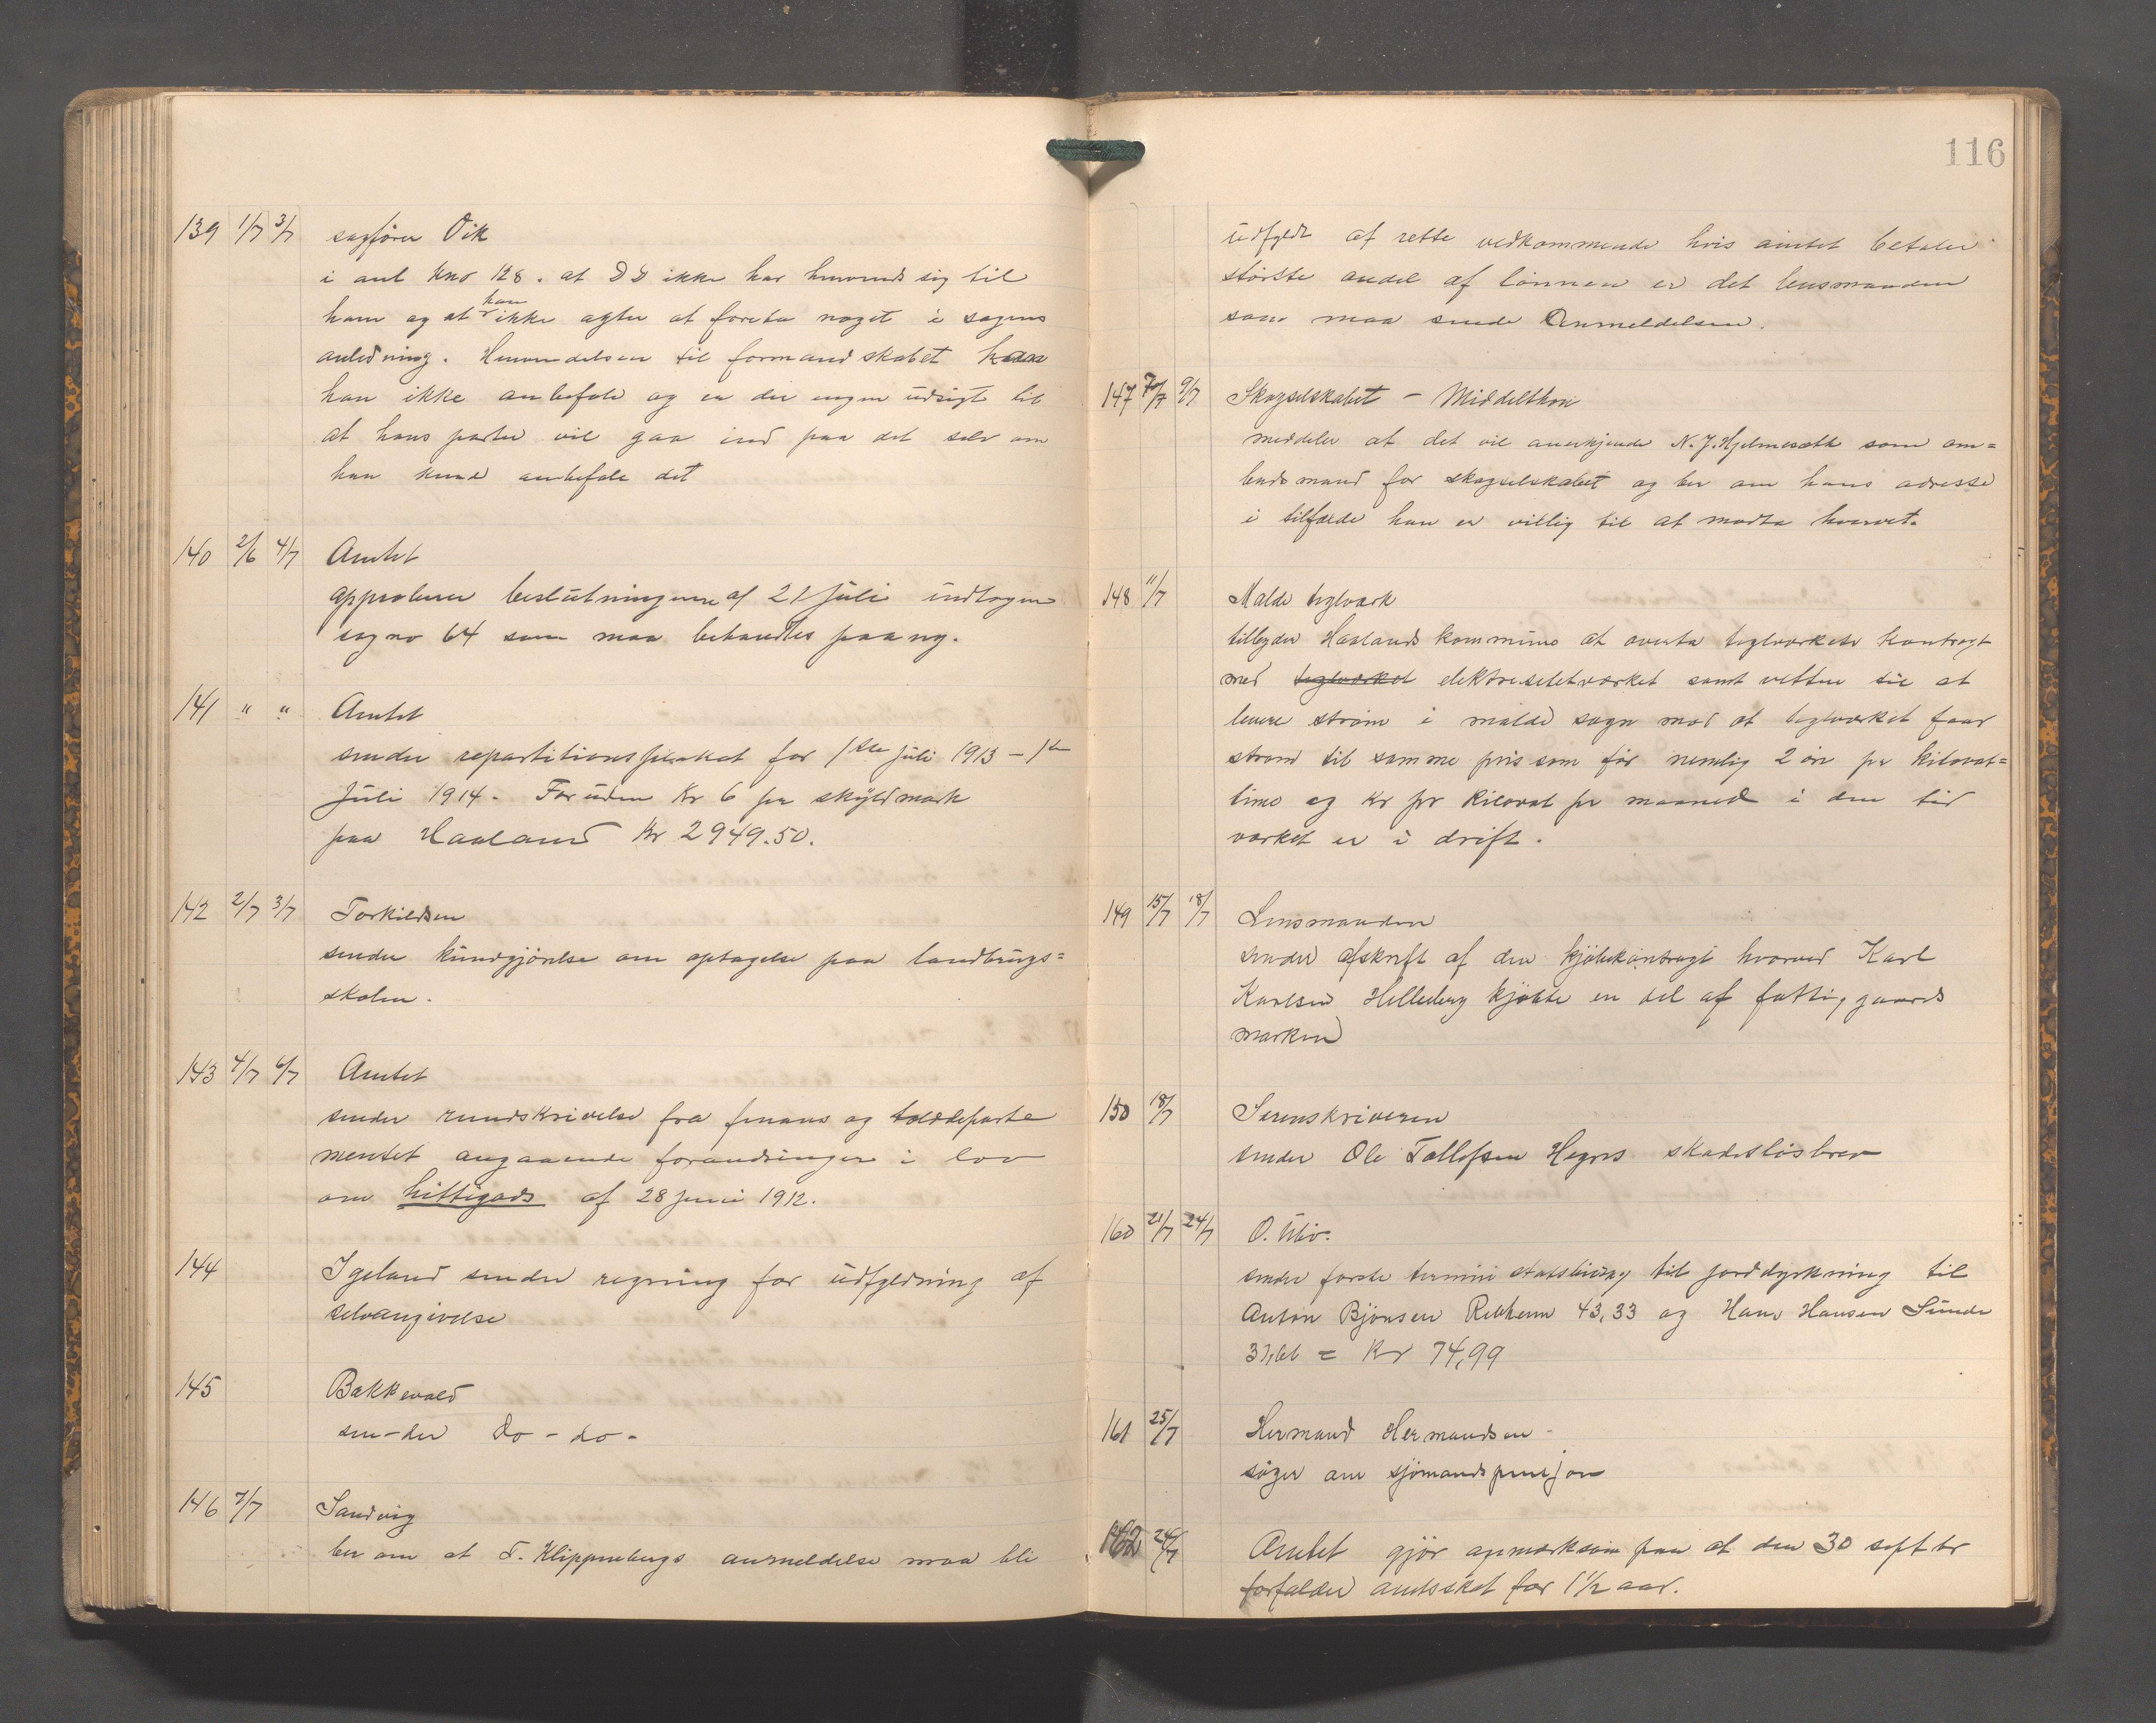 139 1/7 3/7 sagfører Vik
i anl kno 128. at DD ikke har henvend sig til
ham og at han ikke agter at foreta noget i sagens
anledning. Henvendelsen til formandskabet kan
han ikke anbefale og er der ingen udsigt til
at hans parter vil gaa ind paa det selv om
han kunde anbefale det
140 2/6 4/7 Amtet
approberer beslutningerne af 21 Juli undtagen
sag no 64 som maa behandles paa ny.
141 " " Amtet
sender repartitionsplakat for 1ste juli 1913 – 1ste
Juli 1914. Foruden Kr 6 pr skyldmark
paa Haaland Kr 2949.50.
142 2/7 3/7 Torkildsen
sender kundgjørelse om optagelse paa landbrugs=
skolen.
143 4/7 6/7 Amtet
sender rundskrivelse fra finans og tolddeparte
mentet angaaende forandringer i lov
om hittigods af 28 juni 1912.
144 Igeland sender regning for udfyldning af
selvangivelse
145 Bakkevold
sen-der do - do -
146 7/7 Sandvig
ber om at T. Klippenbergs anmeldelse maa bli
116
udfyldt af rette vedkommende hvis amtet betaler
største andel af lønnen er det lensmanden
som maa sende Anmeldelsen.
147 7/7 9/7 Skogselskabet – Middelthon
meddeler at det vil anerkjende N. J. Hjelmesæth som om=
budsmand for skogselskabet og ber om hans adresse
i tilfælde han er villig til at modta hvervet.
148 11/7 Malde teglværk
tilbyder Haalands kommune at overta teglværkets kontragt
med teglværket elektrisitetværket samt retten til at
levere strøm i malde sogn mod at teglværket faar
strøm til samme pris som før nemlig 2 øre pr kilovat=
time og kr pr kilovat pr maaned i den tid
værket er i drift.
149 15/7 18/7 Lensmanden
sender afskrift af den kjøbekontragt hvorved Karl
Karlsen Hellesberg kjøbte en del af fattiggaards
marken
150 18/7 Sorenskriveren
sender Ole Tollefsen Hegres skadesløsbrev
160 21/7 24/7 O. Uliv.
sender første termin statsbidrag til jorddyrkning til
Anton Bjønsen Rebheim 43,33 og Hans Hansen Sunde
31,66 = Kr 74,99
161 25/7 Hermand Hermandsen -
søger om sjømandspension
162 24/7 Amtet gjør opmerksom paa at den 30 septbr
forfalder amtsskat for 1½ aar.